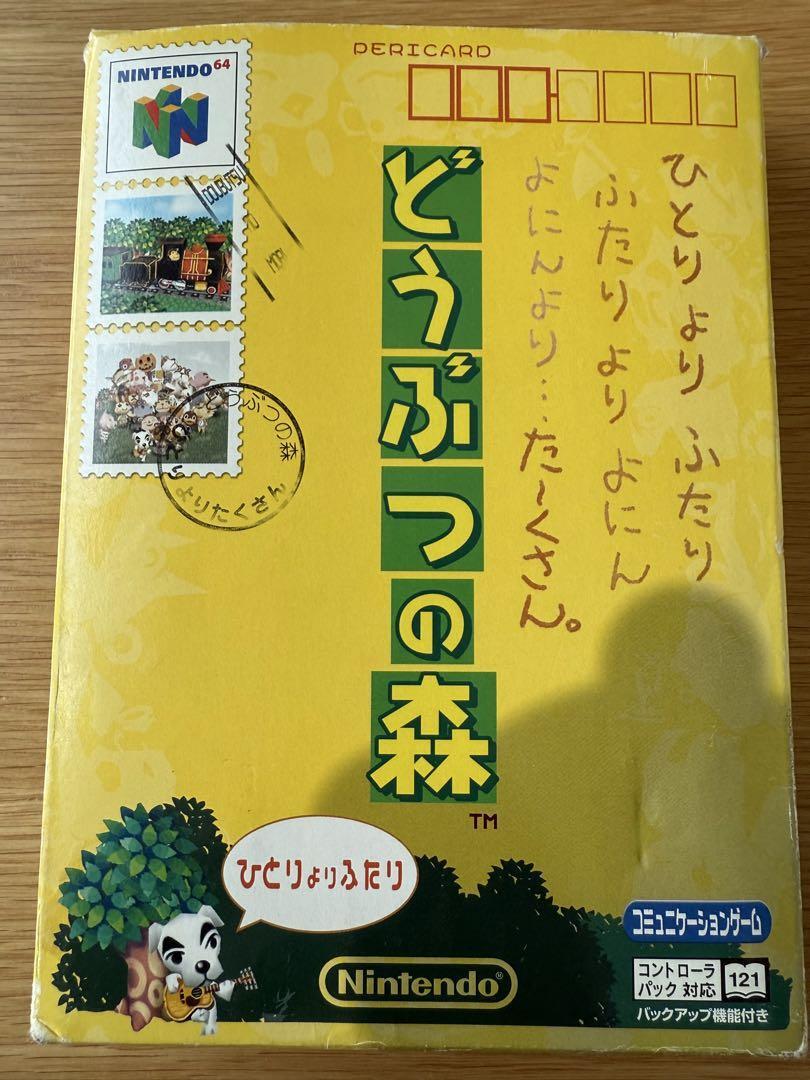 NINTENDO64
PERICARD
DOUBUTSU
NO
MORI
どうぶつの森
よりたくさん
どうぶつの森
TM
ひとりより ふたり
ふたりより よにん
よにんより…た～くさん。
ひとりよりふたり
Nintendo®
コミュニケーションゲーム
コントローラ
パック 対応
121
バックアップ機能付き